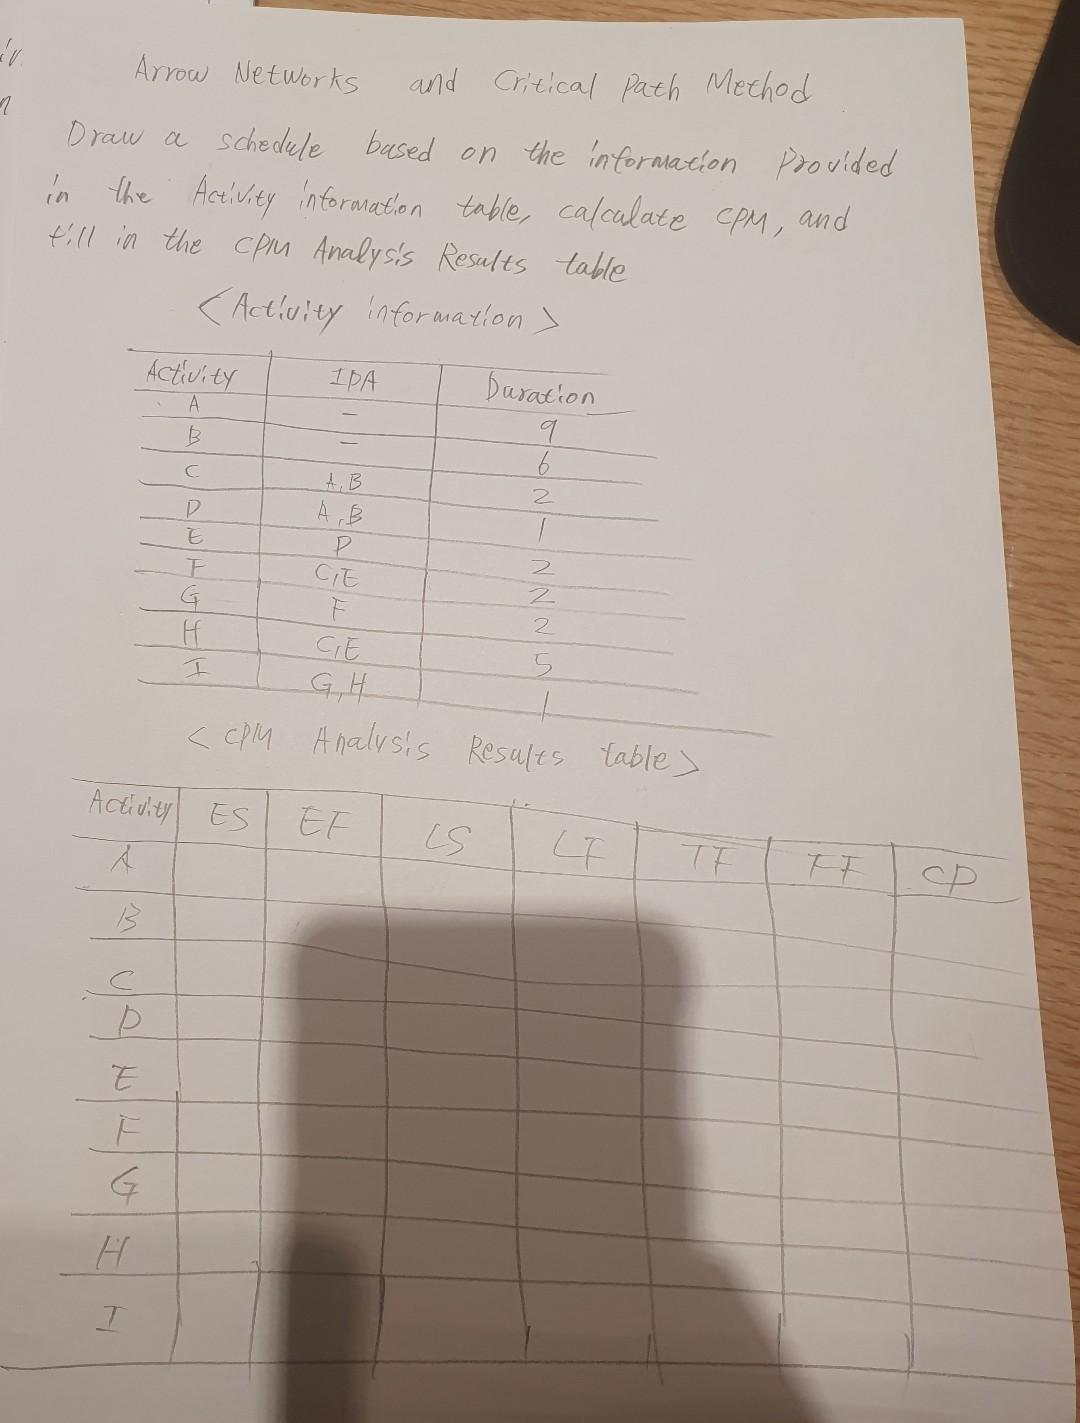 iv.
n
Arrow Networks and Critical Path Method
Draw a schedule based on the information Provided
in the Activity information table, calculate CPM, and
fill in the CPM Analysis Results table
< Activity information >
Activity IPA Duration
A - 9
B - 6
C A,B 2
D A,B 1
E D 2
F C,E 2
G F 2
H C,E 5
I G,H 1
< CPM Analysis Results table >
Activity ES EF LS LF TF FF CP
A
B
C
D
E
F
G
H
I